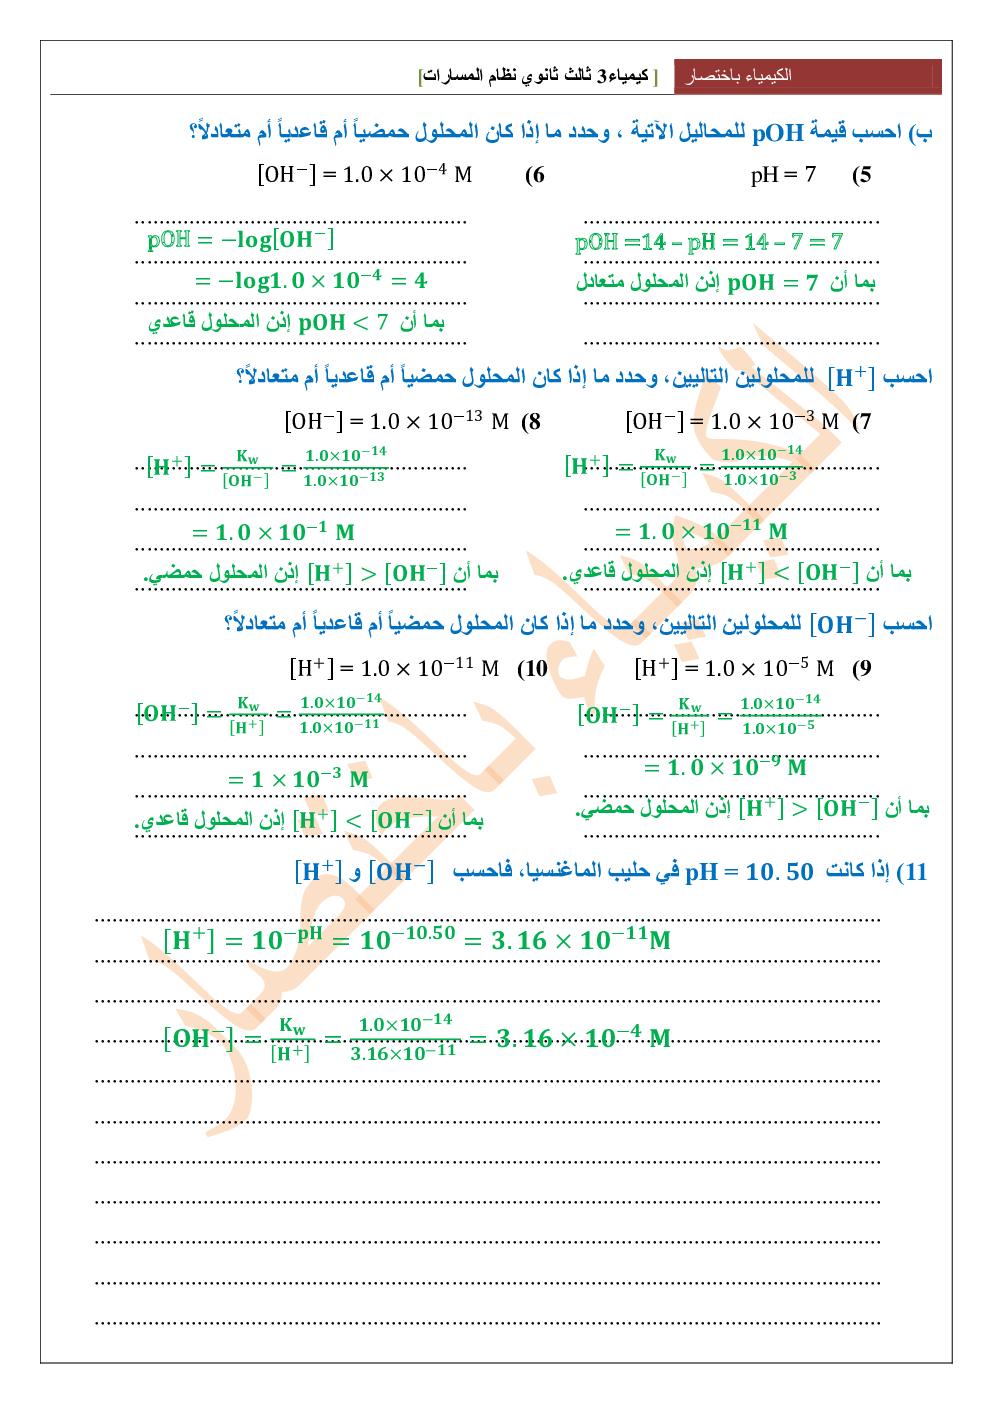 الكيمياء باختصار [ كيمياء3 ثالث ثانوي نظام المسارات]
ب) احسب قيمة pOH للمحاليل الآتية ، وحدد ما إذا كان المحلول حمضياً أم قاعدياً أم متعادلاً؟
5) pH = 7
6) [OH⁻] = 1.0 × 10⁻⁴ M
pOH =14 – pH = 14 – 7 = 7
بما أن pOH = 7 إذن المحلول متعادل
pOH = −log[OH⁻]
= −log1.0 × 10⁻⁴ = 4
بما أن pOH < 7 إذن المحلول قاعدي
احسب [H⁺] للمحلولين التاليين، وحدد ما إذا كان المحلول حمضياً أم قاعدياً أم متعادلاً؟
7) [OH⁻] = 1.0 × 10⁻³ M
8) [OH⁻] = 1.0 × 10⁻¹³ M
[H⁺] = Kw/[OH⁻] = 1.0×10⁻¹⁴/1.0×10⁻³
= 1.0 × 10⁻¹¹ M
بما أن [H⁺] < [OH⁻] إذن المحلول قاعدي.
[H⁺] = Kw/[OH⁻] = 1.0×10⁻¹⁴/1.0×10⁻¹³
= 1.0 × 10⁻¹ M
بما أن [H⁺] > [OH⁻] إذن المحلول حمضي.
احسب [OH⁻] للمحلولين التاليين، وحدد ما إذا كان المحلول حمضياً أم قاعدياً أم متعادلاً؟
9) [H⁺] = 1.0 × 10⁻⁵ M
10) [H⁺] = 1.0 × 10⁻¹¹ M
[OH⁻] = Kw/[H⁺] = 1.0×10⁻¹⁴/1.0×10⁻⁵
= 1.0 × 10⁻⁹ M
بما أن [H⁺] > [OH⁻] إذن المحلول حمضي.
[OH⁻] = Kw/[H⁺] = 1.0×10⁻¹⁴/1.0×10⁻¹¹
= 1 × 10⁻³ M
بما أن [H⁺] < [OH⁻] إذن المحلول قاعدي.
11) إذا كانت pH = 10.50 في حليب الماغنسيا، فاحسب [OH⁻] و [H⁺]
[H⁺] = 10⁻ᵖᴴ = 10⁻¹⁰·⁵⁰ = 3.16 × 10⁻¹¹M
[OH⁻] = Kw/[H⁺] = 1.0×10⁻¹⁴/3.16×10⁻¹¹ = 3.16 × 10⁻⁴ M
الكيمياء باختصار